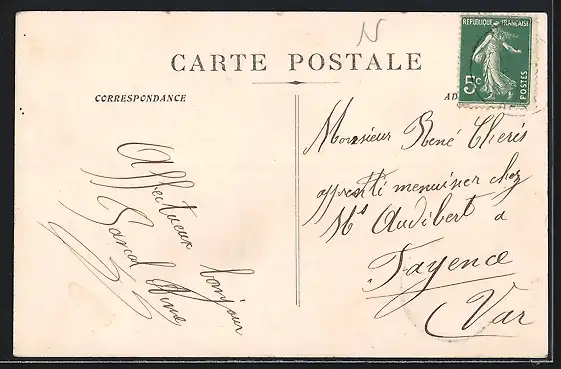 N
CARTE POSTALE
CORRESPONDANCE
AD
REPUBLIQUE FRANÇAISE
5c
POSTES
Affectueux bonjour
Monsieur René Cheris
apprenti menuisier chez
Mr Audibert a
Fayence
Var